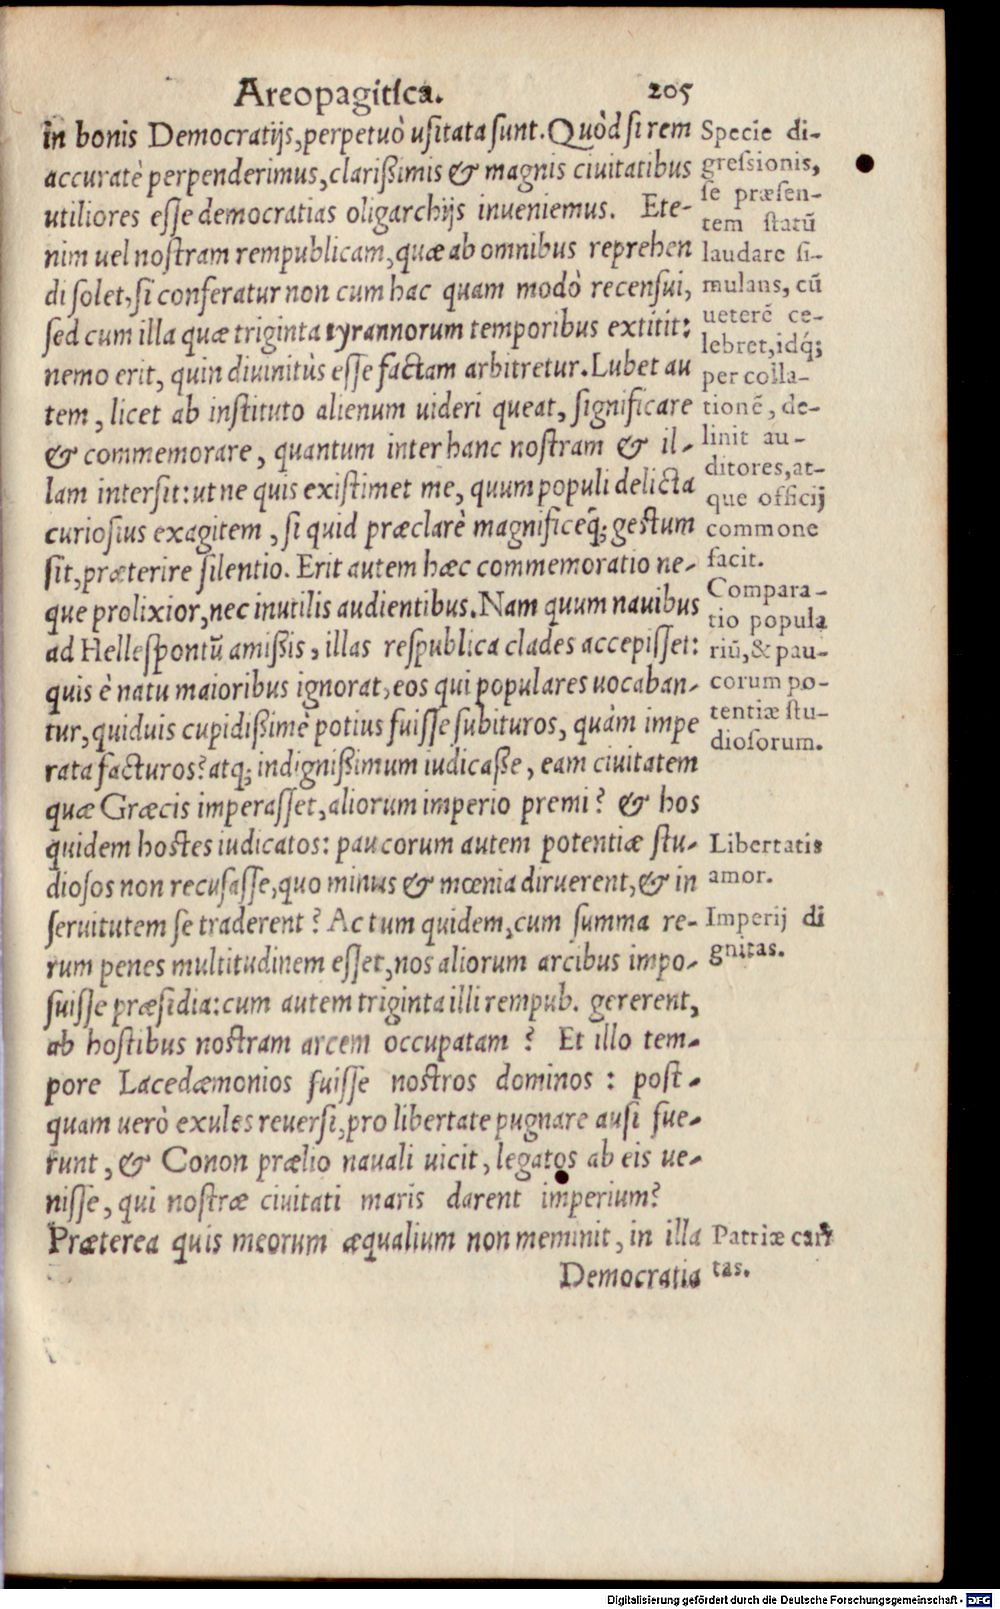 Areopagitica. 205
in bonis Democratijs, perpetuò usitata sunt. Quòd si rem
accuratè perpenderimus, clarißimis & magnis ciuitatibus
utiliores esse democratias oligarchijs inueniemus. Ete-
nim uel nostram rempublicam, quæ ab omnibus reprehen
di solet, si conferatur non cum hac quam modò recensui,
sed cum illa quæ triginta tyrannorum temporibus extitit:
nemo erit, quin diuinitùs esse factam arbitretur. Lubet au
tem, licet ab instituto alienum uideri queat, significare
& commemorare, quantum inter hanc nostram & il-
lam intersit: ut ne quis existimet me, quum populi delicta
curiosius exagitem, si quid præclarè magnificeq́; gestum
sit, præterire silentio. Erit autem hæc commemoratio ne-
que prolixior, nec inutilis audientibus. Nam quum nauibus
ad Hellespontũ amißis, illas respublica clades accepisset:
quis è natu maioribus ignorat, eos qui populares uocaban-
tur, quiduis cupidißimè potius fuisse subituros, quàm impe
rata facturos? atq; indignißimum iudicaße, eam ciuitatem
quæ Græcis imperasset, aliorum imperio premi? & hos
quidem hostes iudicatos: paucorum autem potentiæ stu-
diosos non recusasse, quo minus & mœnia diruerent, & in
seruitutem se traderent? Ac tum quidem, cum summa re-
rum penes multitudinem esset, nos aliorum arcibus impo-
suisse præsidia: cum autem triginta illi rempub. gererent,
ab hostibus nostram arcem occupatam? Et illo tem-
pore Lacedæmonios fuisse nostros dominos: post-
quam uerò exules reuersi, pro libertate pugnare ausi fue-
runt, & Conon prælio nauali uicit, legatos ab eis ue-
nisse, qui nostræ ciuitati maris darent imperium?
Præterea quis meorum æqualium non meminit, in illa
Democratia
Specie di-
gressionis,
se præsen-
tem statũ
laudare si-
mulans, cũ
ueterẽ ce-
lebret, idq́;
per colla-
tionẽ, de-
linit au-
ditores, at-
que officij
commone
facit.
Compara-
tio popula
riũ, & pau-
corum po-
tentiæ stu-
diosorum.
Libertatis
amor.
Imperij di
gnitas.
Patriæ cari
tas.
Digitalisierung gefördert durch die Deutsche Forschungsgemeinschaft - DFG